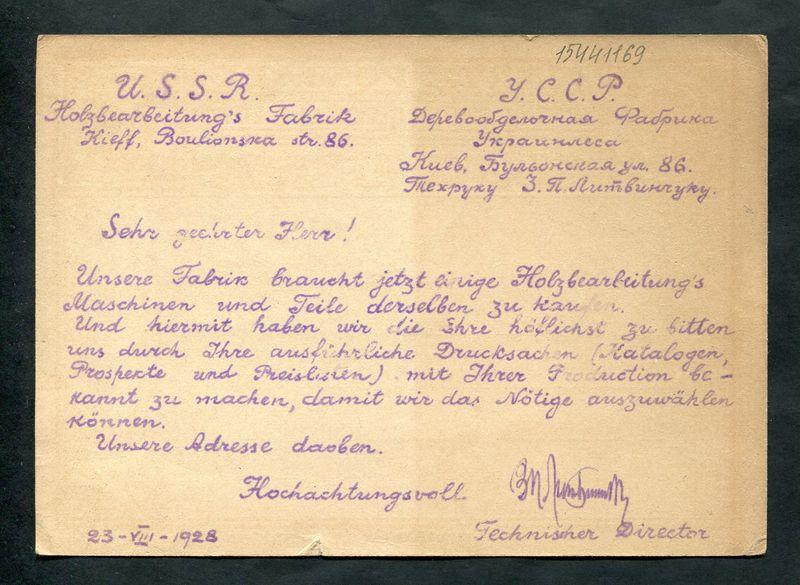 15441169
U. S. S. R.
Holzbearbeitung's Fabrik
Kieff, Boulionska str. 86.
У. С. С. Р.
Деревообделочная Фабрика
Украинлеса
Киев, Бульонская ул. 86.
Техруку З. П. Литвинчуку.
Sehr geehrter Herr!
Unsere Fabrik braucht jetzt einige Holzbearbeitung's
Maschinen und Teile derselben zu kaufen.
Und hiermit haben wir die Ehre höflichst zu bitten
uns durch Ihre ausführliche Drucksachen (Katalogen,
Prospekte und Preislisten) mit Ihrer Production be-
kannt zu machen, damit wir das Nötige auszuwählen
können.
Unsere Adresse daoben.
Hochachtungsvoll
Technischer Director
23-VIII-1928